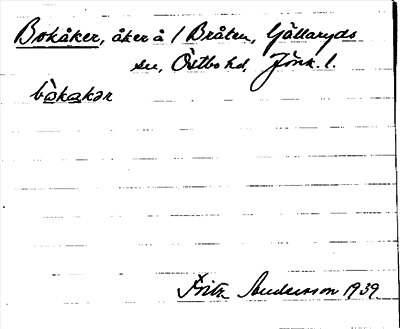 Bokåker, åker å 1 Bråten, Gällaryds
sn, Östbo hd, Jönk. l.
bòkakər
Fritz Andersson 1939